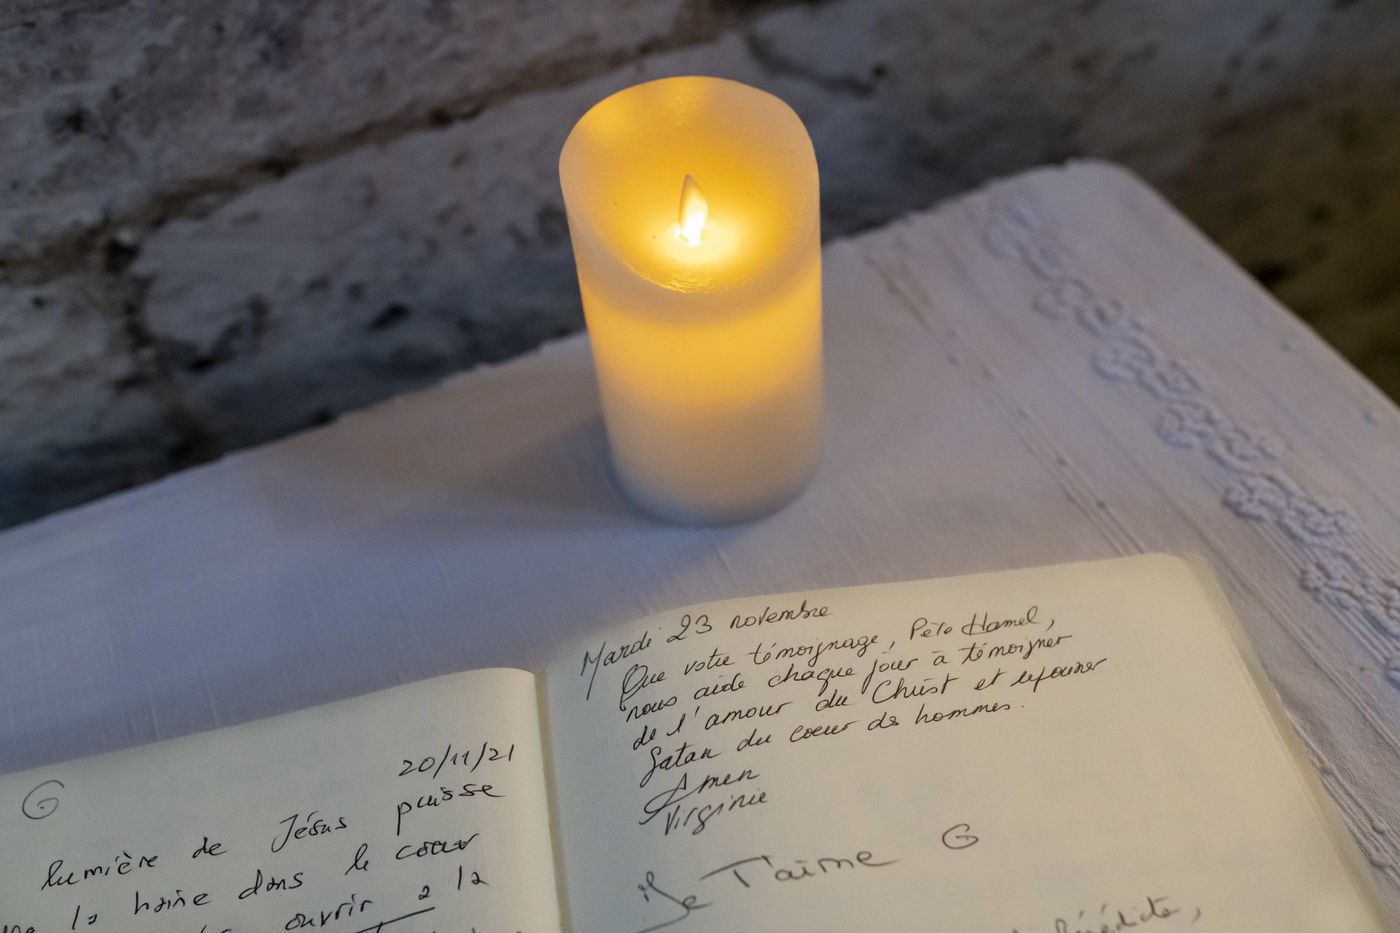 20/11/21
lumière de Jésus puisse
la haine dans le cœur
ouvrir à la
Mardi 23 novembre
Que votre témoignage, Père Hamel,
nous aide chaque jour à témoigner
de l'amour du Christ et repousser
Satan du coeur des hommes.
Amen
Virginie
Je T'aime
Bénédicte,